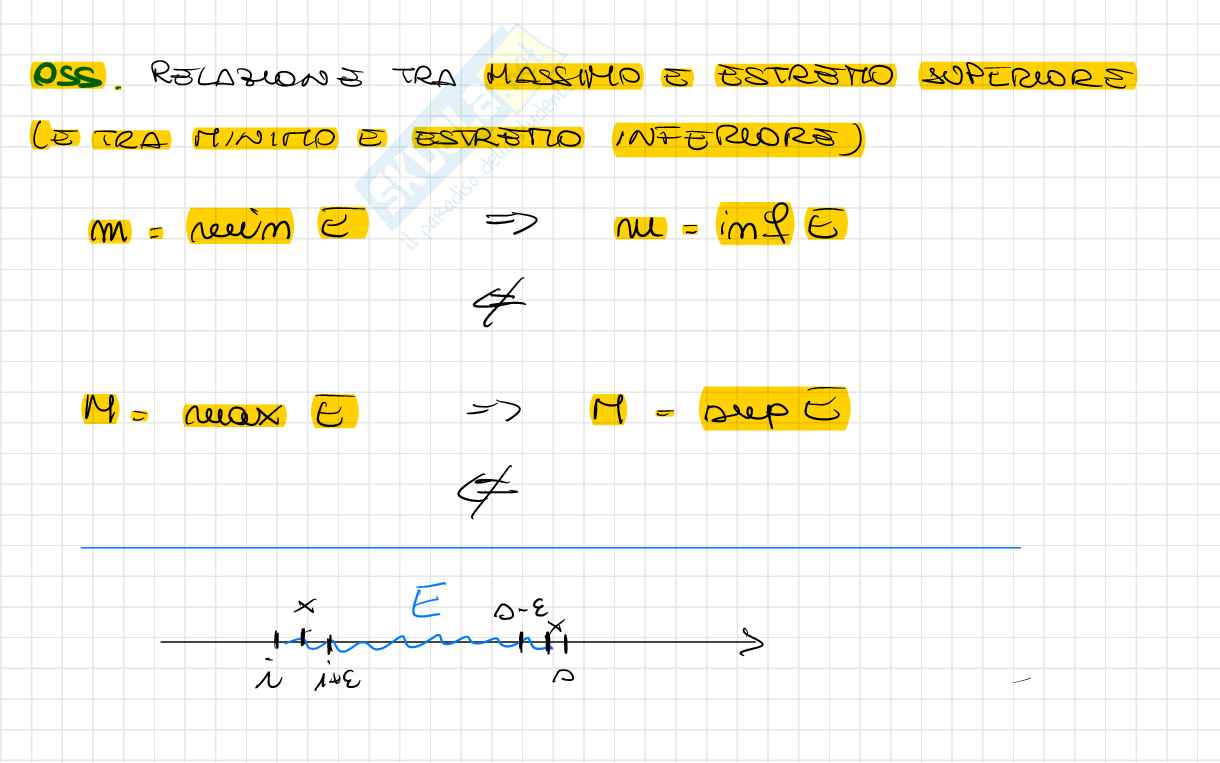 OSS. RELAZIONE TRA MASSIMO E ESTREMO SUPERIORE
(E TRA MINIMO E ESTREMO INFERIORE)
m = min E ⇒ m = inf E
⇍
M = max E ⇒ M = sup E
⇍
x E s-ε x
i i+ε s
SKUOLA.it
il paradiso dello studente